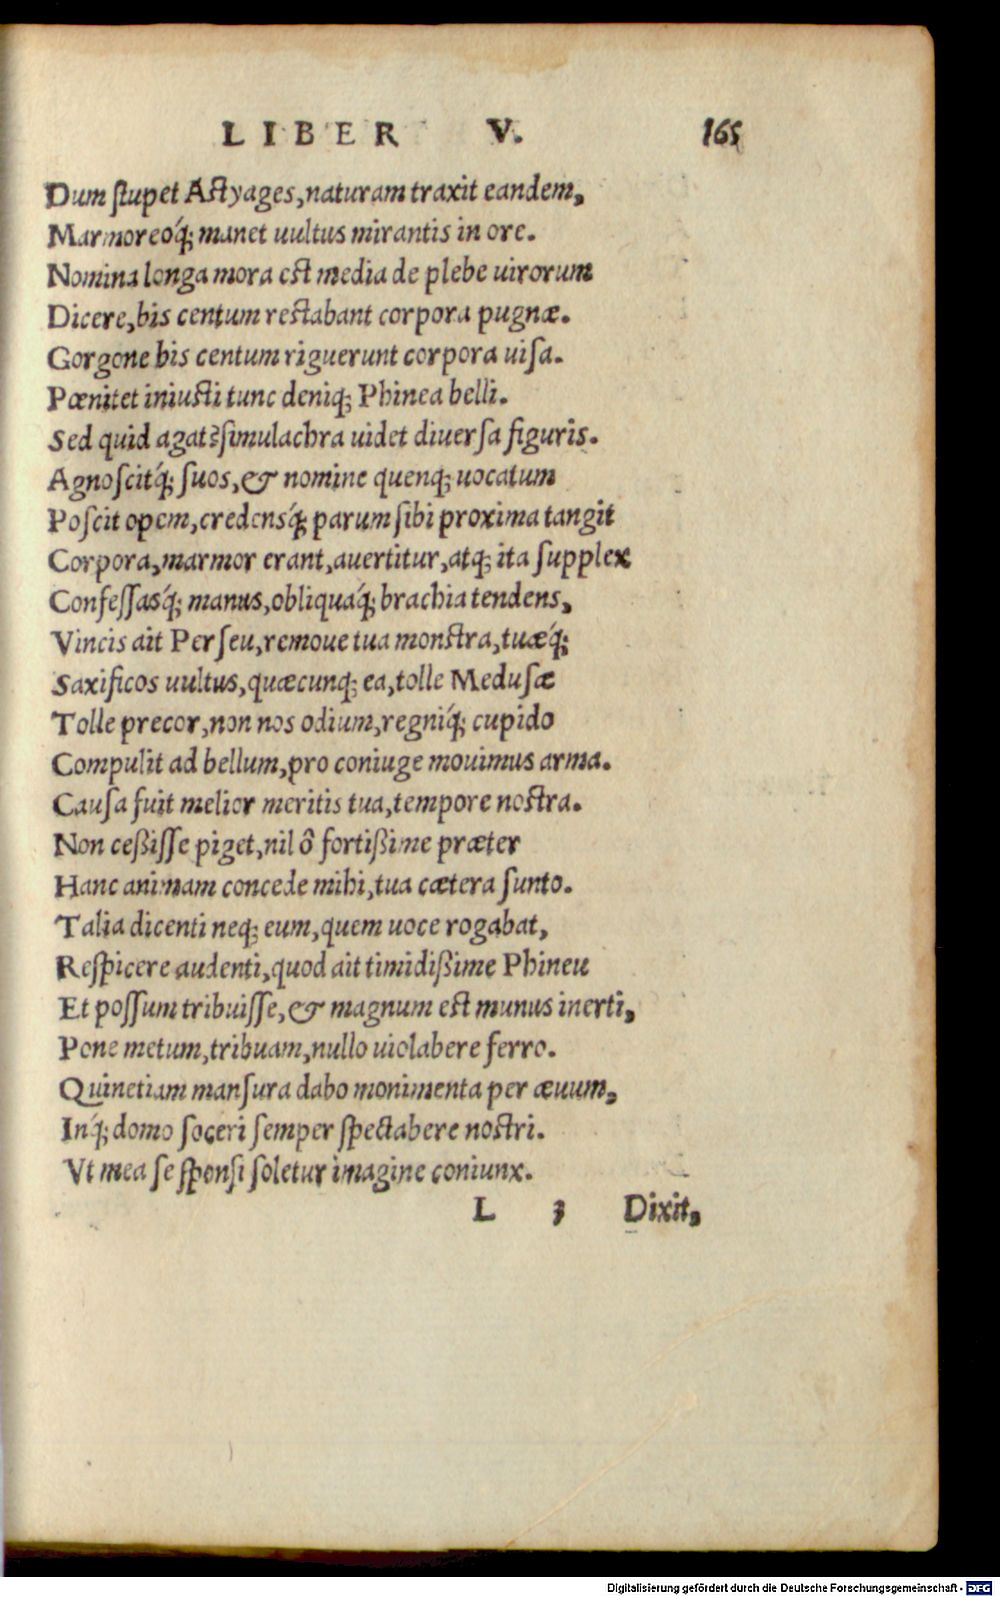 LIBER V. 165
Dum ſtupet Aſtyages, naturam traxit eandem,
Marmoreoq́; manet uultus mirantis in ore.
Nomina longa mora eſt media de plebe uirorum
Dicere, bis centum reſtabant corpora pugnæ.
Gorgone bis centum riguerunt corpora uiſa.
Pœnitet iniuſti tunc deniq; Phinea belli.
Sed quid agat? ſimulachra uidet diuerſa figuris.
Agnoſcitq́; ſuos, & nomine quenq; uocatum
Poſcit opem, credensq́; parum ſibi proxima tangit
Corpora, marmor erant, auertitur, atq; ita ſupplex
Confeſſasq́; manus, obliquaq́; brachia tendens,
Vincis ait Perſeu, remoue tua monſtra, tuæq́;
Saxificos uultus, quæcunq; ea, tolle Meduſæ
Tolle precor, non nos odium, regniq́; cupido
Compulit ad bellum, pro coniuge mouimus arma.
Cauſa fuit melior meritis tua, tempore noſtra.
Non ceßiſſe piget, nil ô fortißime præter
Hanc animam concede mihi, tua cætera ſunto.
Talia dicenti neq; eum, quem uoce rogabat,
Reſpicere audenti, quod ait timidißime Phineu
Et poſſum tribuiſſe, & magnum eſt munus inerti,
Pone metum, tribuam, nullo uiolabere ferro.
Quinetiam manſura dabo monimenta per æuum,
Inq́; domo ſoceri ſemper ſpectabere noſtri.
Vt mea ſe ſponſi ſoletur imagine coniunx.
L 3 Dixit,
Digitalisierung gefördert durch die Deutsche Forschungsgemeinschaft - DFG